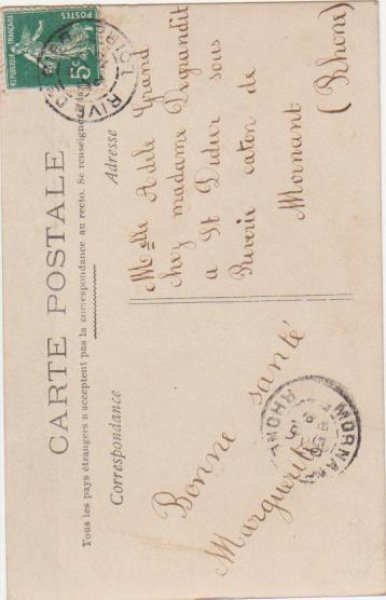 CARTE POSTALE
Tous les pays étrangers n'acceptent pas la correspondance au recto. Se renseigner
Correspondance
Adresse
Bonne santé
Marguerite
Melle Adèle Grand
chez madame
a St Didier sous
Riverie caton de
Mornant
(Rhone)
POSTES
5c
RIVE
LOIRE
MORNANT
RHONE